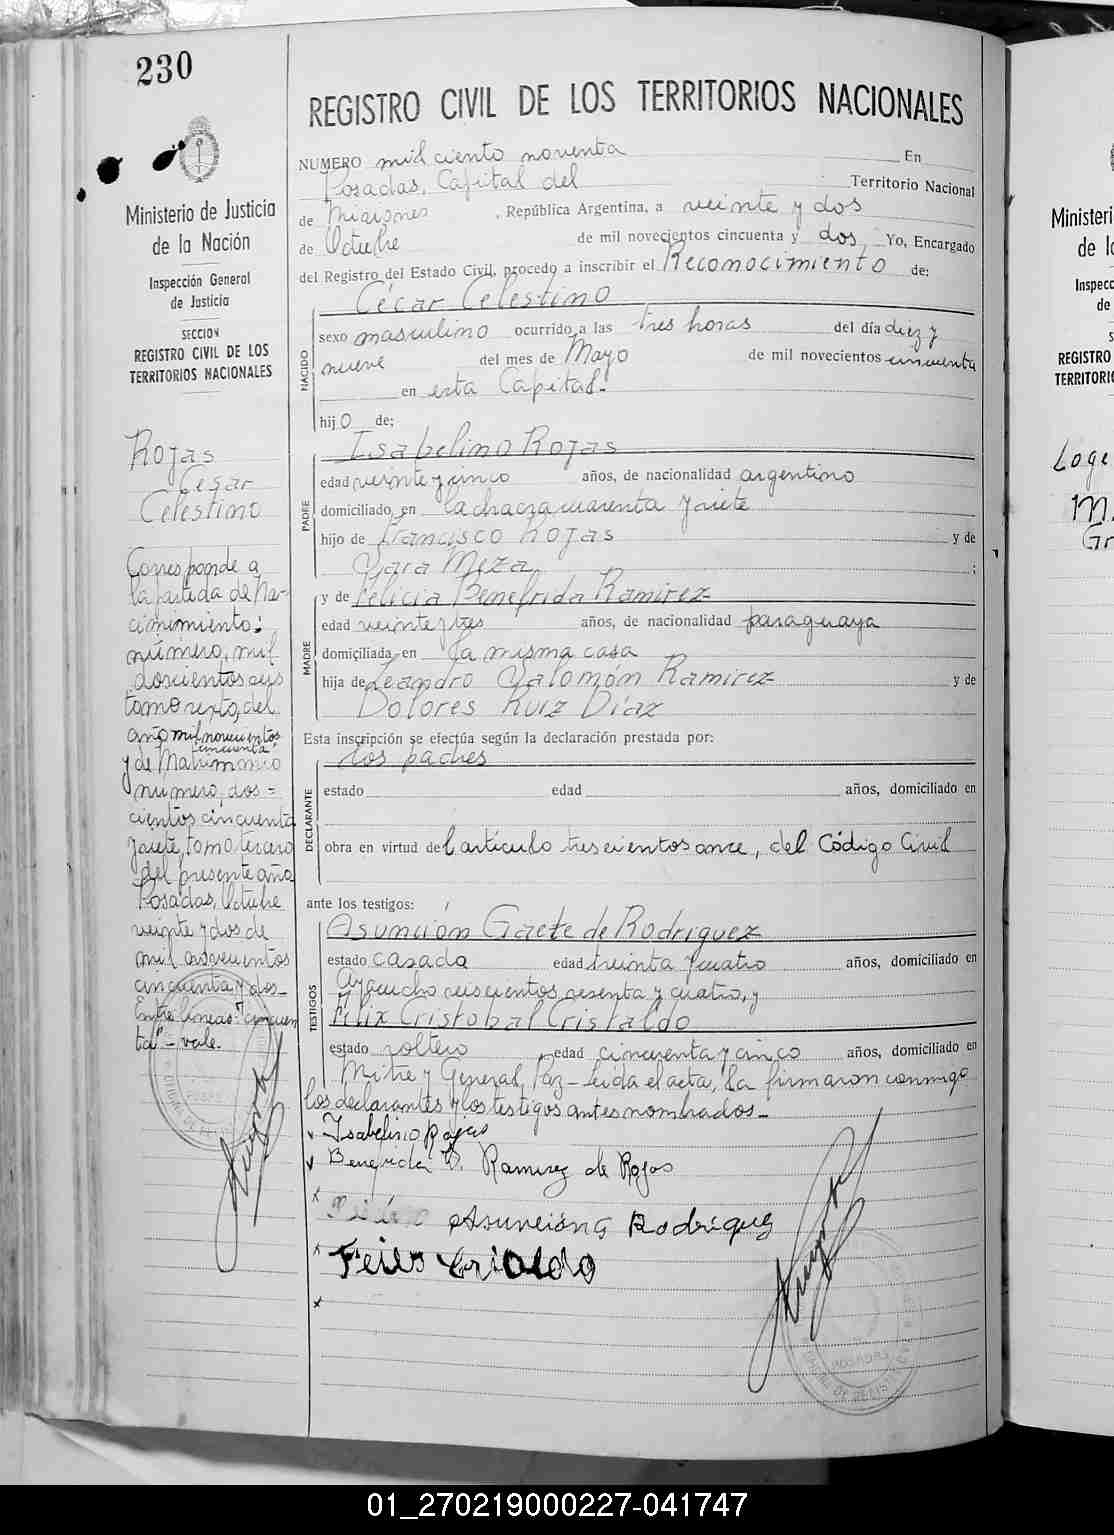 230
Ministerio de Justicia
de la Nación
Inspección General
de Justicia
SECCION
REGISTRO CIVIL DE LOS
TERRITORIOS NACIONALES
Rojas
César
Celestino
Corresponde a
la partida de Na-
cimimiento:
número, mil
doscientos seis
tomo sexto, del
año mil novecientos
cincuenta
y de Matrimonio
número, dos=
cientos cincuenta
y siete, tomo tercero
del presente año
Posadas, Octubre
veinte y dos de
mil novecientos
cincuenta y dos_
Entre líneas: "cincuen
ta" - vale.
REGISTRO CIVIL DE LOS TERRITORIOS NACIONALES
NUMERO mil ciento noventa En
Posadas, Capital del Territorio Nacional
de Misiones, República Argentina, a veinte y dos
de Octubre de mil novecientos cincuenta y dos, Yo, Encargado
del Registro del Estado Civil, procedo a inscribir el Reconocimiento de:
César Celestino
NACIDO
sexo masculino ocurrido a las tres horas del día diez y
nueve del mes de Mayo de mil novecientos cincuenta
en esta Capital.-
hijo de:
PADRE
Isabelino Rojas
edad veinte y cinco años, de nacionalidad argentino
domiciliado en la chacra cuarenta y siete
hijo de Francisco Rojas y de
Sara Meza ;
MADRE
y de Felicia Benefrida Ramirez
edad veinte y tres años, de nacionalidad paraguaya
domiciliada en la misma casa
hija de Leandro Salomón Ramirez y de
Dolores Ruiz Díaz
Esta inscripción se efectúa según la declaración prestada por:
DECLARANTE
los padres
estado edad años, domiciliado en
obra en virtud del artículo trescientos once, del Código Civil
ante los testigos:
TESTIGOS
Asunción Gaete de Rodríguez
estado casada edad treinta y cuatro años, domiciliado en
Ayacucho seiscientos sesenta y cuatro, y
Félix Cristobal Cristaldo
estado soltero edad cincuenta y cinco años, domiciliado en
Mitre y General Paz - Leida el acta, la firmaron conmigo
los declarantes y los testigos antes nombrados_
Isabelino Rojas
Benefrida V. Ramirez de Rojas
Asunción G Rodriguez
POSADAS
Ministeri
de l
Inspecc
de
S
REGISTRO
TERRITORI
Loge
M
Gr
01_270219000227-041747